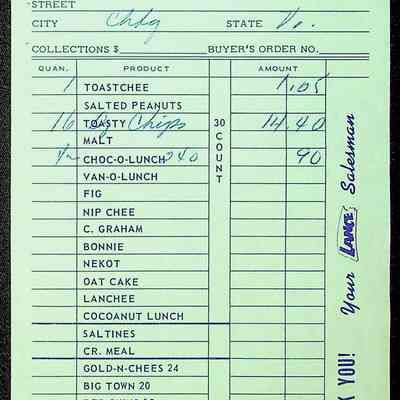 STREET
CITY Chdg STATE Va.
COLLECTIONS $ BUYER'S ORDER NO.
QUAN. PRODUCT AMOUNT
1 TOASTCHEE 1.05
SALTED PEANUTS
16 TOASTY Chips 14.40
MALT
CHOC-O-LUNCH 240 90
VAN-O-LUNCH
FIG
NIP CHEE
C. GRAHAM
BONNIE
NEKOT
OAT CAKE
LANCHEE
COCOANUT LUNCH
SALTINES
CR. MEAL
GOLD-N-CHEES 24
BIG TOWN 20
30 COUNT
YOU! Your LANCE Salesman